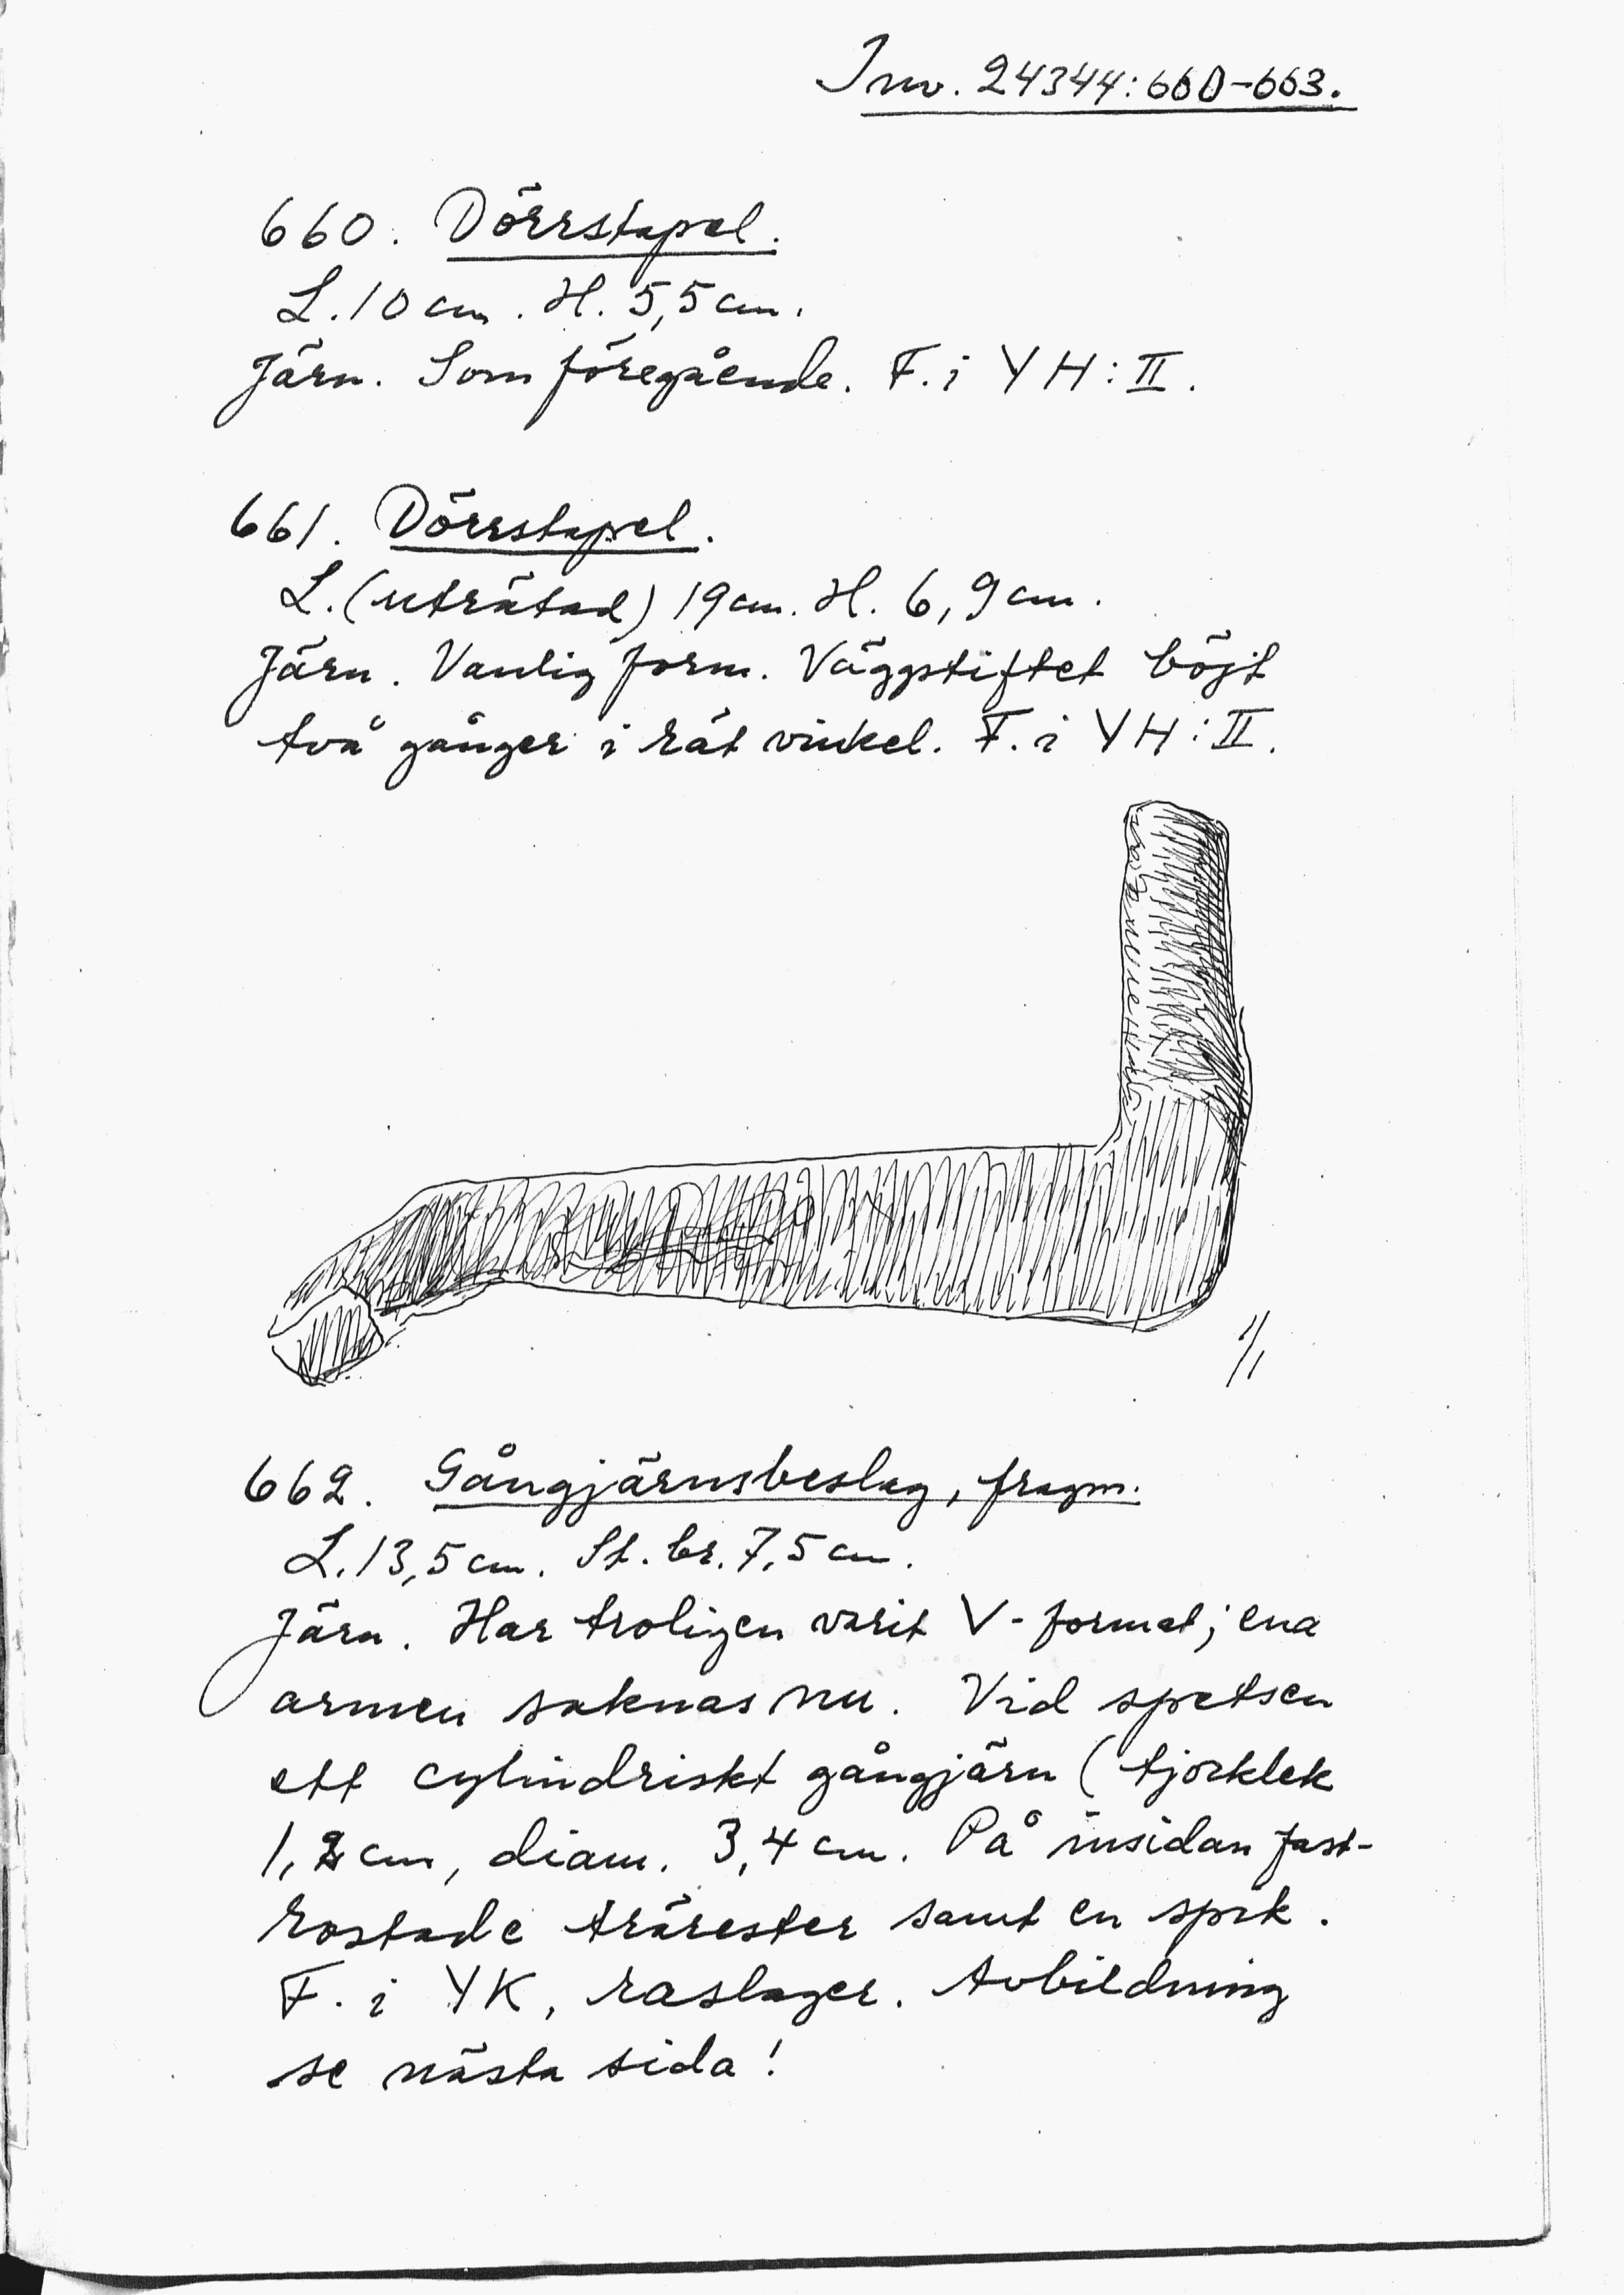 Inv. 24344:660-663.
660. Dörrstapel.
L. 10 cm. H. 5,5 cm.
Järn. Som föregående. F. i YH:II.
661. Dörrstapel.
L. (uträtad) 19 cm. H. 6,9 cm.
Järn. Vanlig form. Väggstiftet böjt
två gånger i rät vinkel. F. i YH:II.
1/1
662. Gångjärnsbeslag, fragm.
L. 13,5 cm. St. br. 7,5 cm.
Järn. Har troligen varit V-format; ena
armen saknas nu. Vid spetsen
ett cylindriskt gångjärn (tjocklek
1,2 cm, diam. 3,4 cm. På insidan fast-
rostade trärester samt en spik.
F. i YK, raslager. Avbildning
se nästa sida!